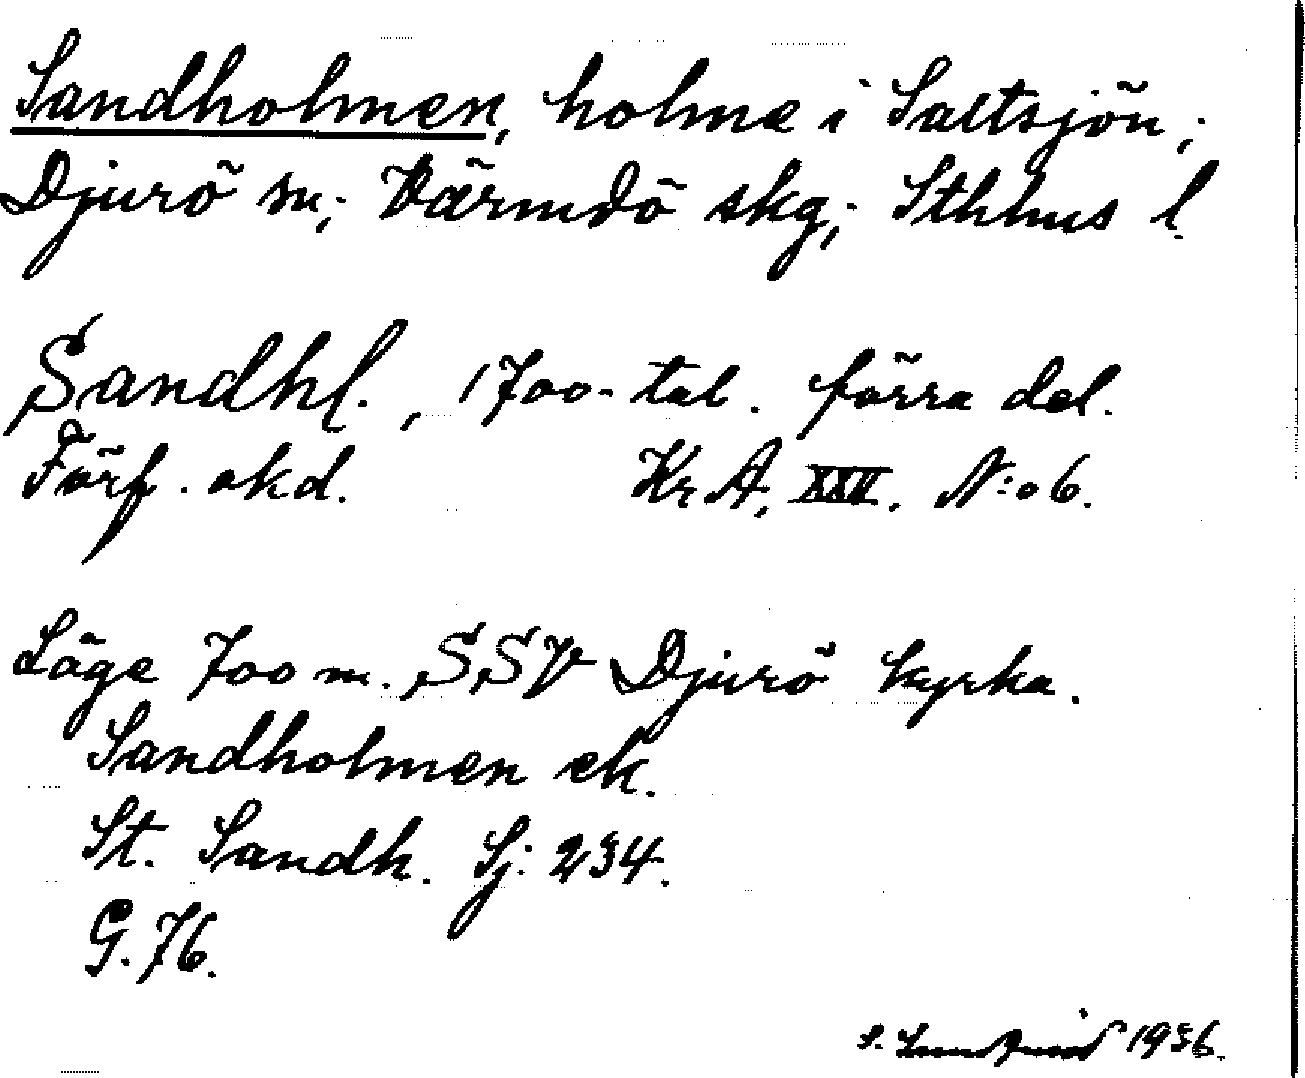 Sandholmen, holme i Saltsjön;
Djurö sn; Värmdö skg; Sthlms l.
Sandhl., 1700-tal. förra del.
Förf. okd. KrA, XXV. N:o 6.
Läge 700 m. SSV Djurö kyrka.
Sandholmen ek.
St. Sandh. Sj: 234.
G. 76.
S. 1936.